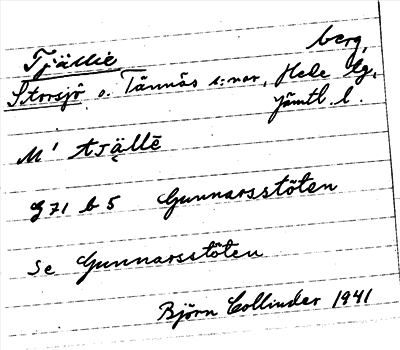 Tjällie berg,
Storsjö o. Tännäs s:nar, Hede tg,
Jämtl. l.
M' tjällē
G 71 b 5 Gunnarsstöten
Se Gunnarsstöten
Björn Collinder 1941